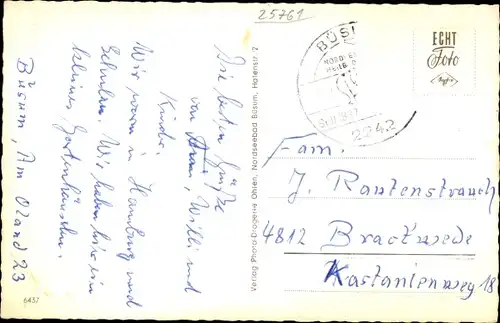 25761
Die besten Grüße
von Anni, Willi und
Kinder.
Wir waren in Hamburg und
Schulen. Wir haben hier ein
kleines Gartenhäuschen.
Büsum, Am Oland 23
6437
Verlag Photo-Drogerie Nordseebad Büsum, Hohenstr. 2
BÜSU
2242
ECHT
Foto
Agfa
Fam.
J. Rautenstrauch
4812 Brackwede
Kastanienweg 18